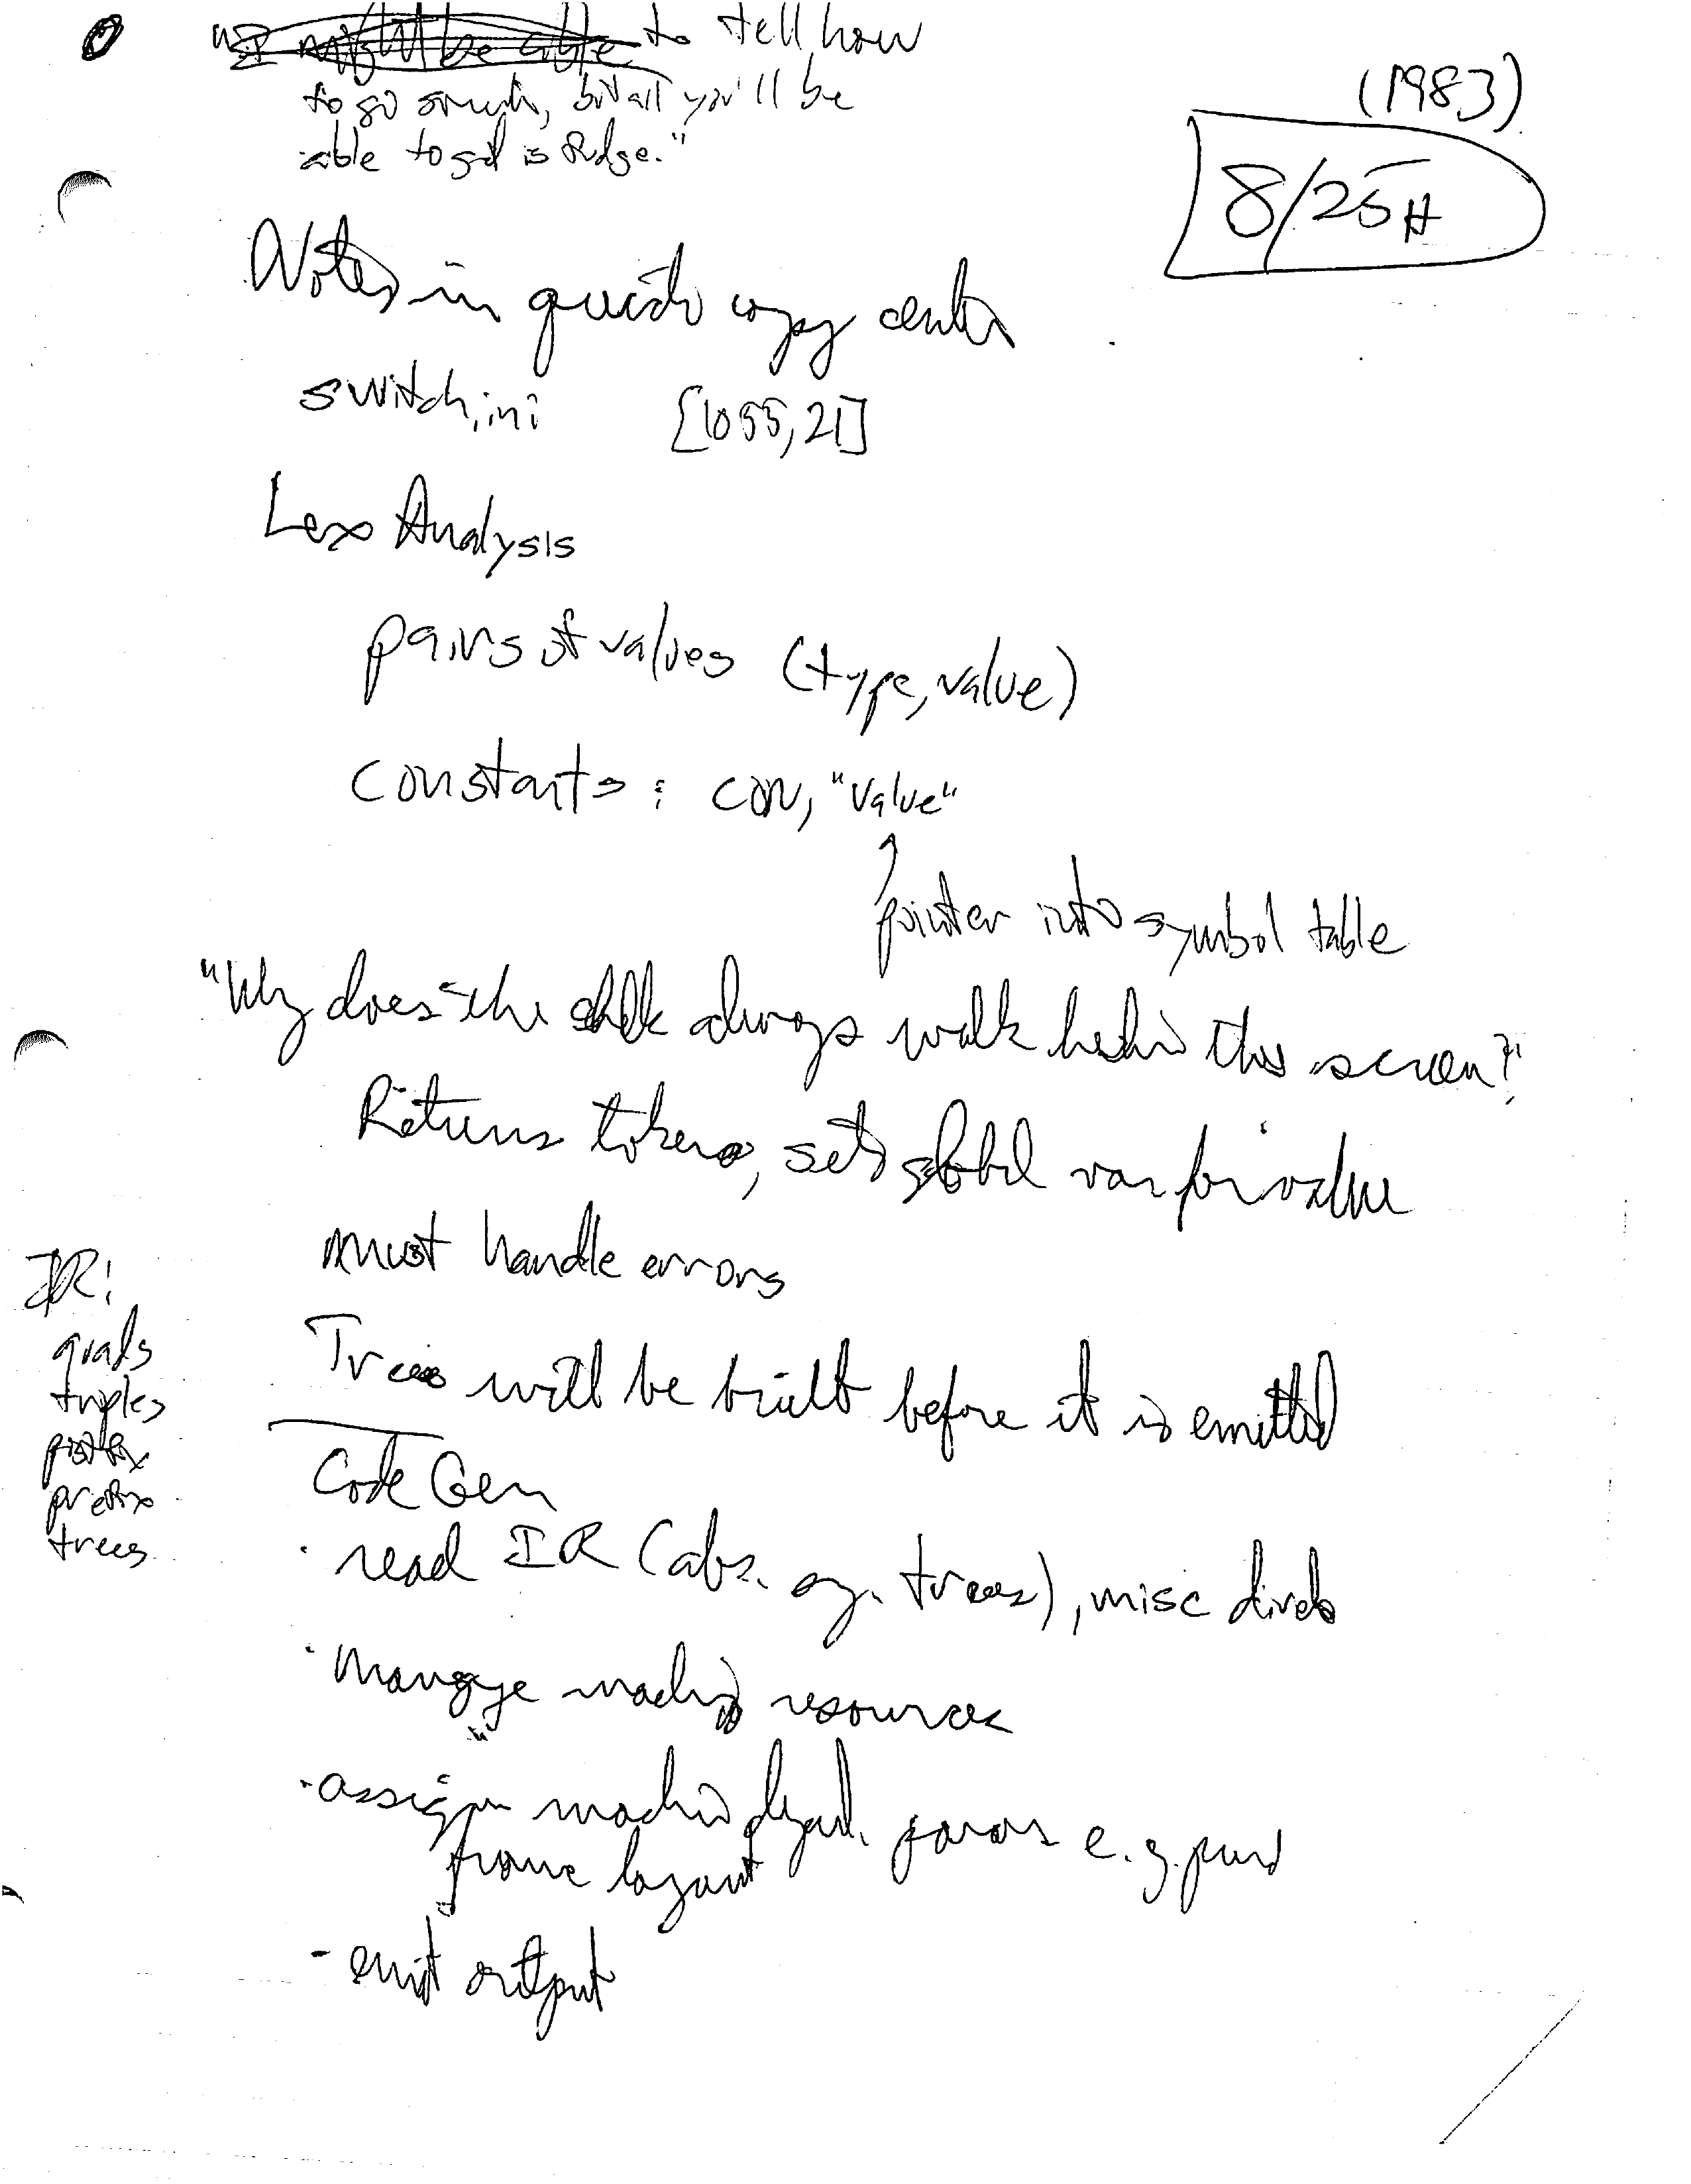 "I might be able to tell how
to go south, but all you'll be
able to get is fudge."
(1983)
8/25 H
Notes in copy center
switch.ini [1055,21]
Lex Analysis
pairs of values (type, value)
constants: con, "value"
pointer into symbol table
"Why does the chalk always walk behind the screen?"
Returns tokens, sets global var for value
must handle errors
Trees will be built before it is emitted
IR:
quads
triples
postfix
prefix
trees
Code Gen
· read IR (abs. sy. trees), misc
· Manage machine resources
· assign machine depend. params e.g.
frame layout
- emit output